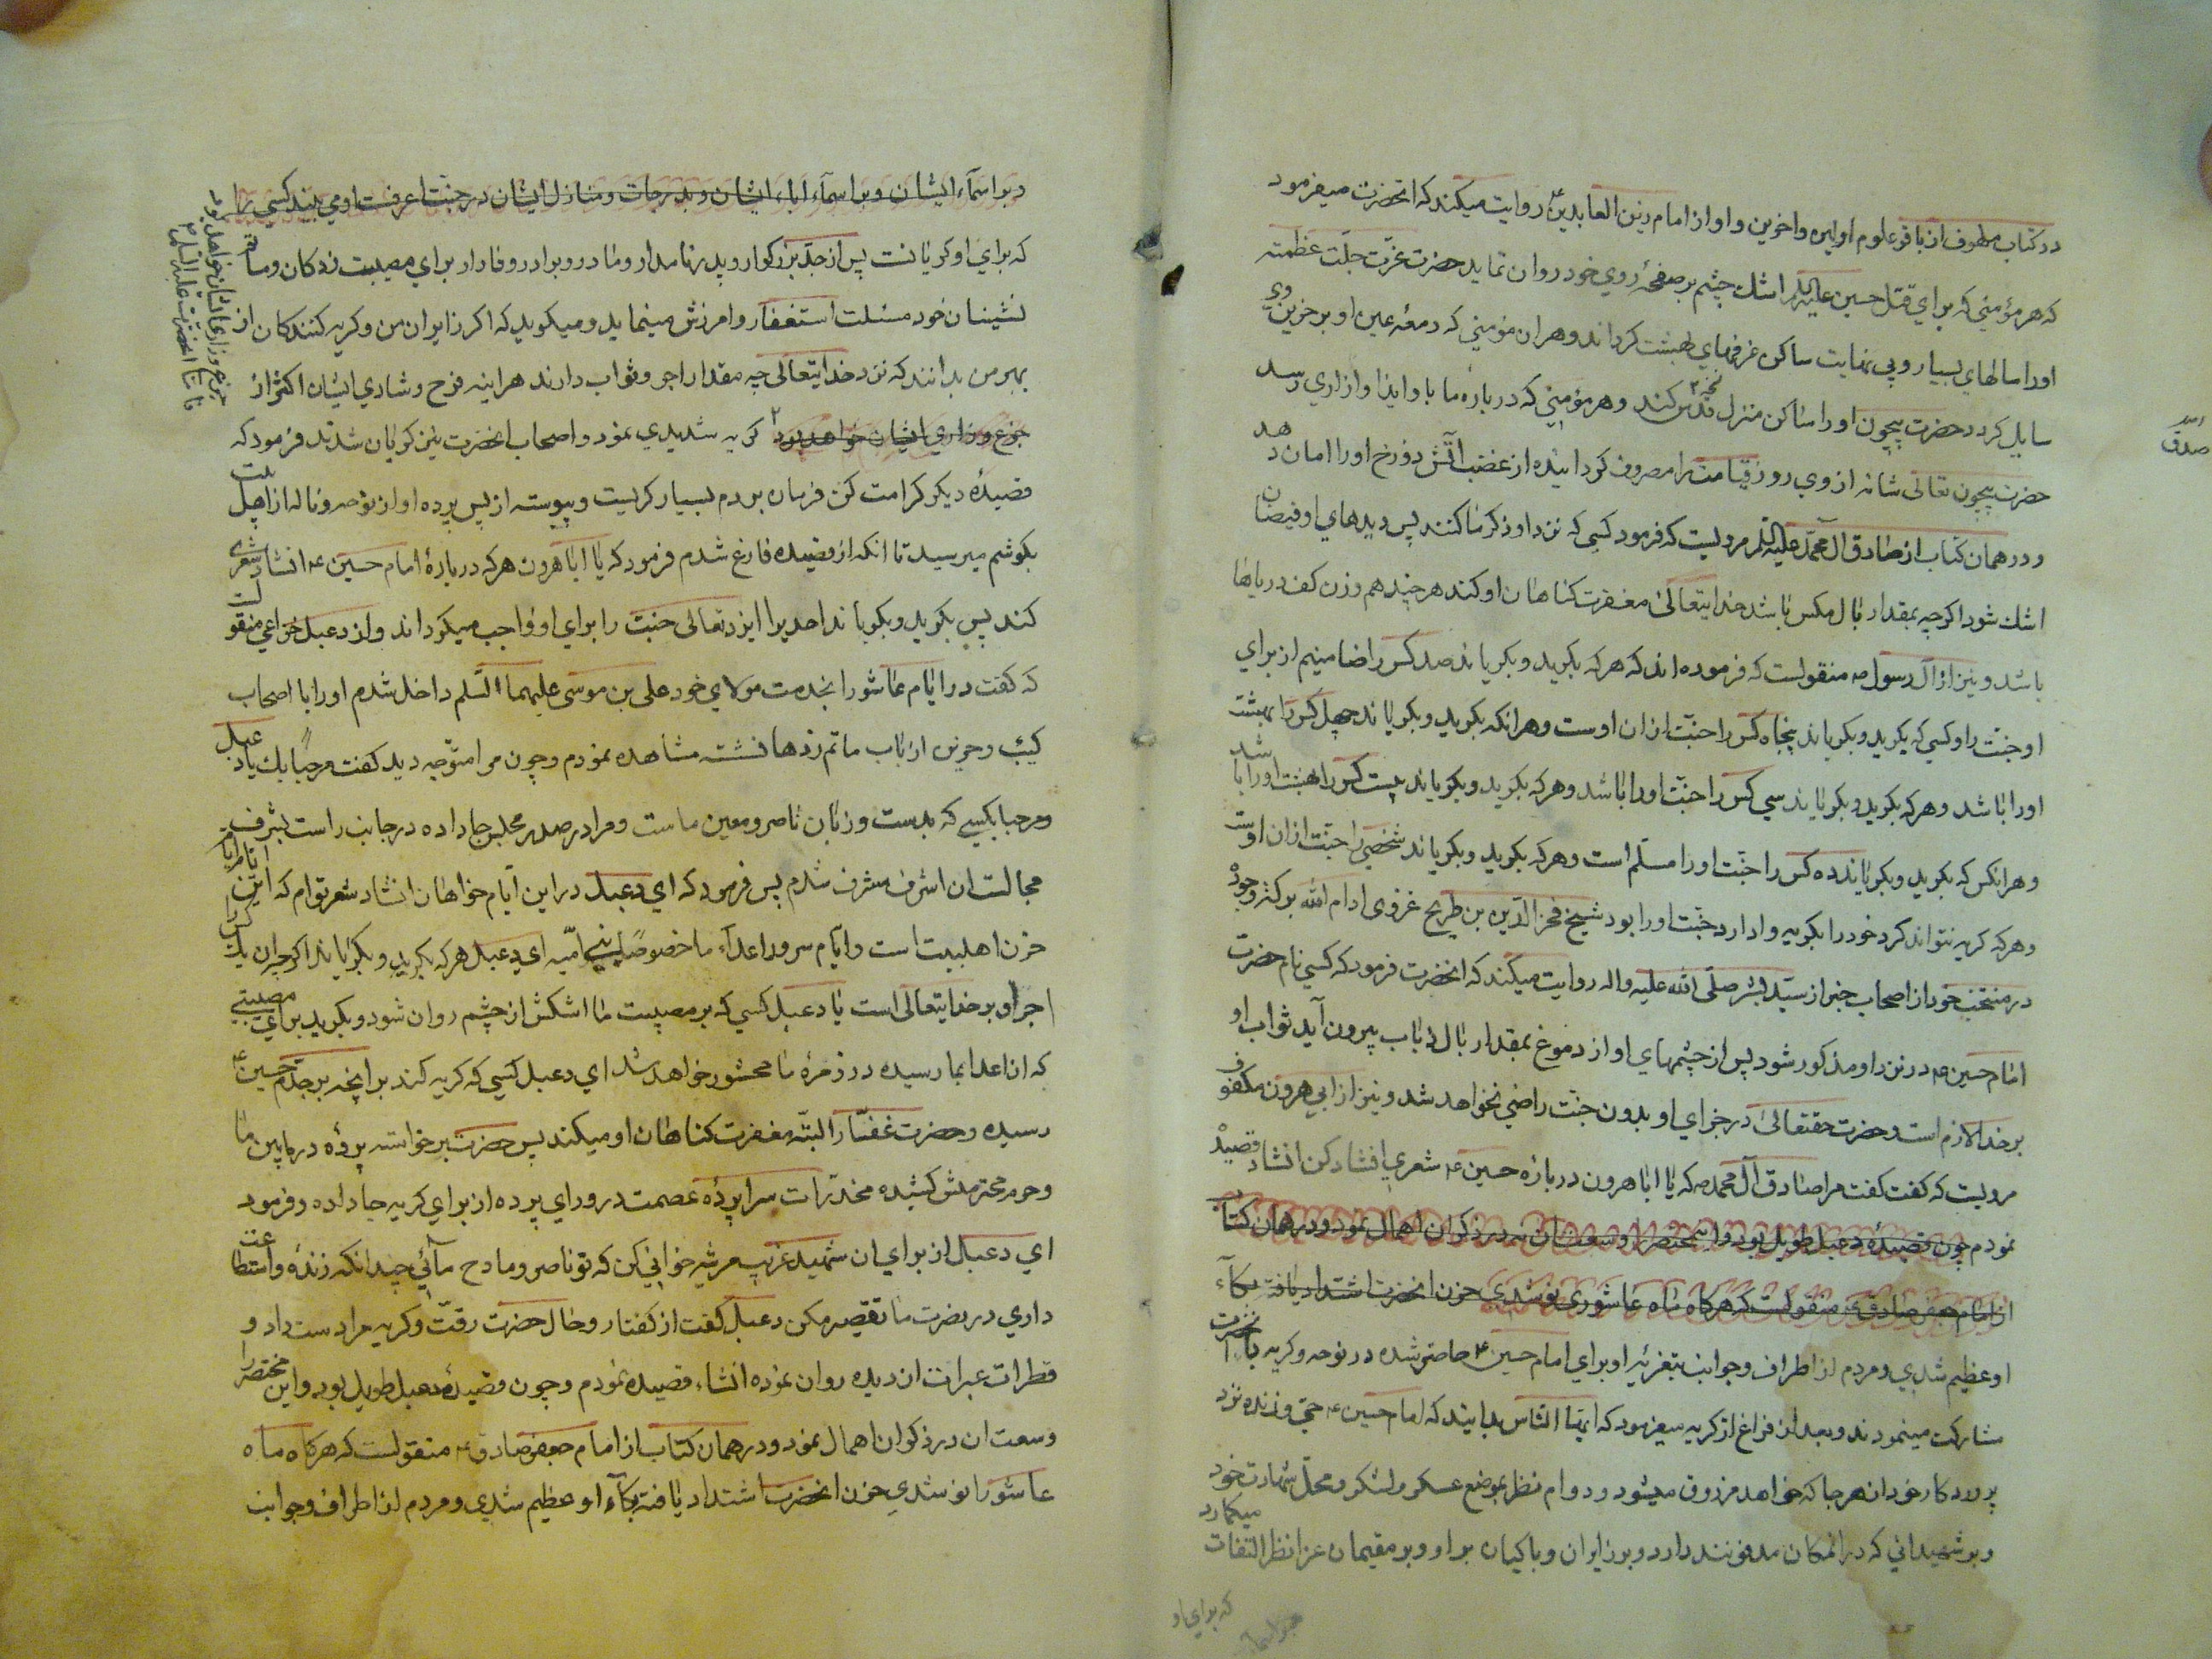 در کتاب ملهوف از باقر علوم اولین واخرین و او از امام زین العابدین ع روایت میکند که انحضرت میفرمود
که هر مؤمنی که برای قتل حسین علیه السلم اشك چشم بر صفحهٔ روی خود روان نماید حضرت عزّت جلّت عظمته
اورا سالهای بسیار و بی نهایت ساکن غرفهای بهشت کرداند و هر ان مؤمنی که دمعهٔ عین او بر خدین وی
سایل کردد حضرت بیچون اورا ساکن منزل کند و هر مؤمنی که در بارهٔ ما باو ایذا و ازاری رسد
حضرت بیچون تعالی شانه از وی روز قیامت را مصروف کردانیده از غضب آتش دوزخ اورا امان دهد
و در همان کتاب از صادق آل محمّد علیه السلم مرویست که فرمود کسی که نزد او ذکر ما کنند پس دیدهای او فیضان
اشك شود اکرچه بمقدار بال مکس باشد خدایتعالی مغفرت کناهان او کند هر چند هم وزن کف دریاها
باشد و نیز از آل رسول ص منقولست که فرموده اند که هر که بکرید و بکریاند صد کس را ضامنیم از برای
او جنّت را و کسی که بکرید و بکریاند پنجاه کس را جنّت از ان اوست و هر انکه بکرید و بکریاند چهل کس را بهشت
اورا باشد و هر که بکرید و بکریاند سی کس را جنّت اورا باشد و هر که بکرید و بکریاند بیست کس را بهشت اورا باشد
و هر انکس که بکرید و بکریاند ده کس را جنّت اورا مسلّم است و هر که بکرید و بکریاند شخصی را جنّت از ان اوست
و هر که کریه نتواند کرد خود را بکریه وادارد جنّت اورا بود شیخ فخر الدّین بن طریح غروی ادام الله برکة وجوده
در منتخب خود از اصحاب خبر از سیّد البشر صلّی الله علیه واله روایت میکند که انحضرت فرمود که کسی نام حضرت
امام حسین ع در نزد او مذکور شود پس از چشمهای او از دموع بمقدار بال ذباب بیرون آید ثواب او
بر خدا لازم است و حضرت حقتعالی در جزای او بدون جنّت راضی نخواهد شد و نیز از ابی هرون مکفوف
مرویست که کفت کفت مرا صادق آل محمد ص که یا ابا هرون در بارهٔ حسین ع شعری انشاد کن انشاد قصیدهٔ
نمودم چون قصیدهٔ دعبل طویل بود و این مختصر را وسعت ان نه در ذکر ان اهمال نمود و در همان کتاب
از امام جعفر صادق ع منقولست که هرکاه ماه عاشوری نو شدی حزن انحضرت اشتداد یافته بکآء
او عظیم شدی و مردم از اطراف و جوانب بتعزیهٔ او برای امام حسین ع حاضر شده در نوحه و کریه بانحضرت
مشارکت مینمودند و بعد از فراغ از کریه میفرمود که ایّها النّاس بدانید که امام حسین ع حیّ و زنده نزد
پروردکار خود از هر جا که خواهد مرزوق میشود و دوام نظر بموضع عسکر و لشکر و محلّ شهادت خود میکمارد
و بر شهیدانی که در انمکان مدفونند دارد و بر زایران و باکیان بر او و بر مقیمان عزا نظر التفات
که برای او
و بر اسمآء ایشان و بر اسمآء اباء ایشان و بدرجات و منازل ایشان در جنّت اعرفست و می بیند کسی را
که برای او کریانست پس از جدّ بزرکوار و پدر نامدار و مادر و برادر وفادار برای مصیبت زدکان و ماتم
نشینان خود مسئلت استغفار و امرزش مینماید و میکوید که اکر زایران من و کریه کنندکان از
بهر من بدانند که نزد خدایتعالی چه مقدار اجر و ثواب دارند هراینه فرح و شادی ایشان اکثر از
جزع و زاری ایشان خواهد بود ۲ کریه شدیدی نمود و اصحاب انحضرت نیز کریان شدند فرمود که
قصیدهٔ دیکر کرامت کن فرمان بردم بسیار کریست و پیوسته از پس پرده اواز نوحه و ناله از اهل بیت
بکوشم میرسید تا انکه از قصیده فارغ شدم فرمود که یا ابا هرون هر که در بارهٔ امام حسین ع انشاد شعری
کند پس بکرید و بکریاند احدیرا ایزد تعالی جنّت را برای او واجب میکرداند و از دعبل خزاعی منقولست
که کفت در ایّام عاشورا بخدمت مولای خود علی بن موسی علیهما السّلم داخل شدم اورا با اصحاب
کئیب و حزین از باب ماتم زدها نشسته مشاهده نمودم و چون مرا متوّجه دید کفت مرحبًا بك یا دعبل
و مرحبا بکسی که بدست و زبان ناصر و معین ماست و مرا در صدر مجلس جا داده در جانب راست بشرف
مجالست ان اشرف مشرف شدم پس فرمود که ای دعبل در این ایّام خواهان انشاد شعر توام که این ایّام ایّام
حزن اهلبیت است و ایّام سرور اعدآء ما خصوصًا بنی امیّه ای دعبل هر که بکرید و بکریاند اکرچه ان یك کس را
اجر او بر خدایتعالی است یا دعبل کسی که بر مصیبت ما اشکش از چشم روان شود و بکرید برای مصیبتی
که از اعدا بما رسیده در زمرهٔ ما محشور خواهد شد ای دعبل کسی که کریه کند بر انچه بر جدّم حسین ع
رسیده و حضرت غفّار البتّه مغفرت کناهان او میکند پس حضرت برخواسته پرده در مابین ما
و حرم محترمش کشیده مخدّرات سراپردهٔ عصمت در ورای پرده از برای کریه جا داده و فرمود
ای دعبل از برای ان شهید غریب مرثیه خوانی کن که تو ناصر و مادح مائی چندانکه زندهٔ و استطاعت
داری در نصرت ما تقصیر مکن دعبل کفت از کفتار و حال حضرت رقّت و کریه مرا دست داد و
قطرات عبرات از دیده روان نموده انشاء قصیده نمودم و چون قصیدهٔ دعبل طویل بود و این مختصر را
وسعت ان در ذکر ان اهمال نمود و در همان کتاب از امام جعفر صادق ع منقولست که هرکاه ماه
عاشورا نو شدی حزن انحضرت اشتداد یافته بکآء او عظیم شدی و مردم از اطراف و جوانب